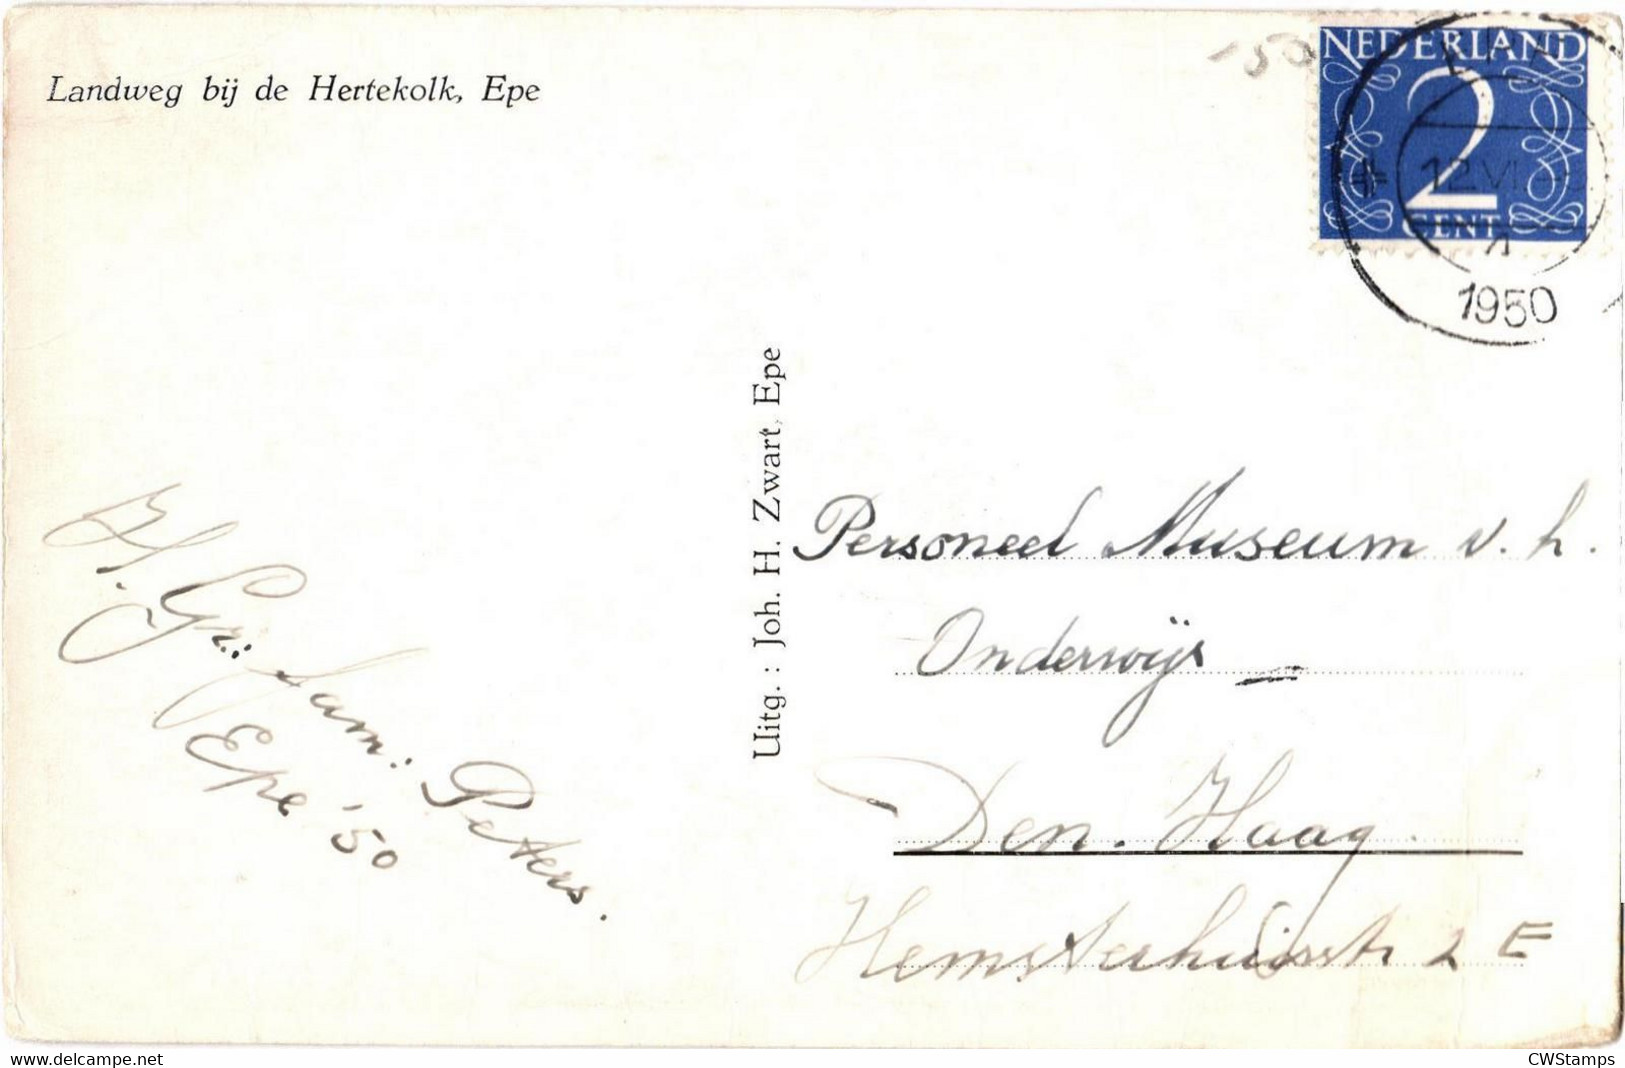 Landweg bij de Hertekolk, Epe
-50
NEDERLAND
2
CENT
12 VI
1950
Uitg.: Joh. H. Zwart, Epe
Personeel Museum v. h.
Onderwijs
Den. Haag.
Hemsterhuisstr 2 E
H. Gr. v. fam: Peters.
Epe '50
www.delcampe.net
CWStamps